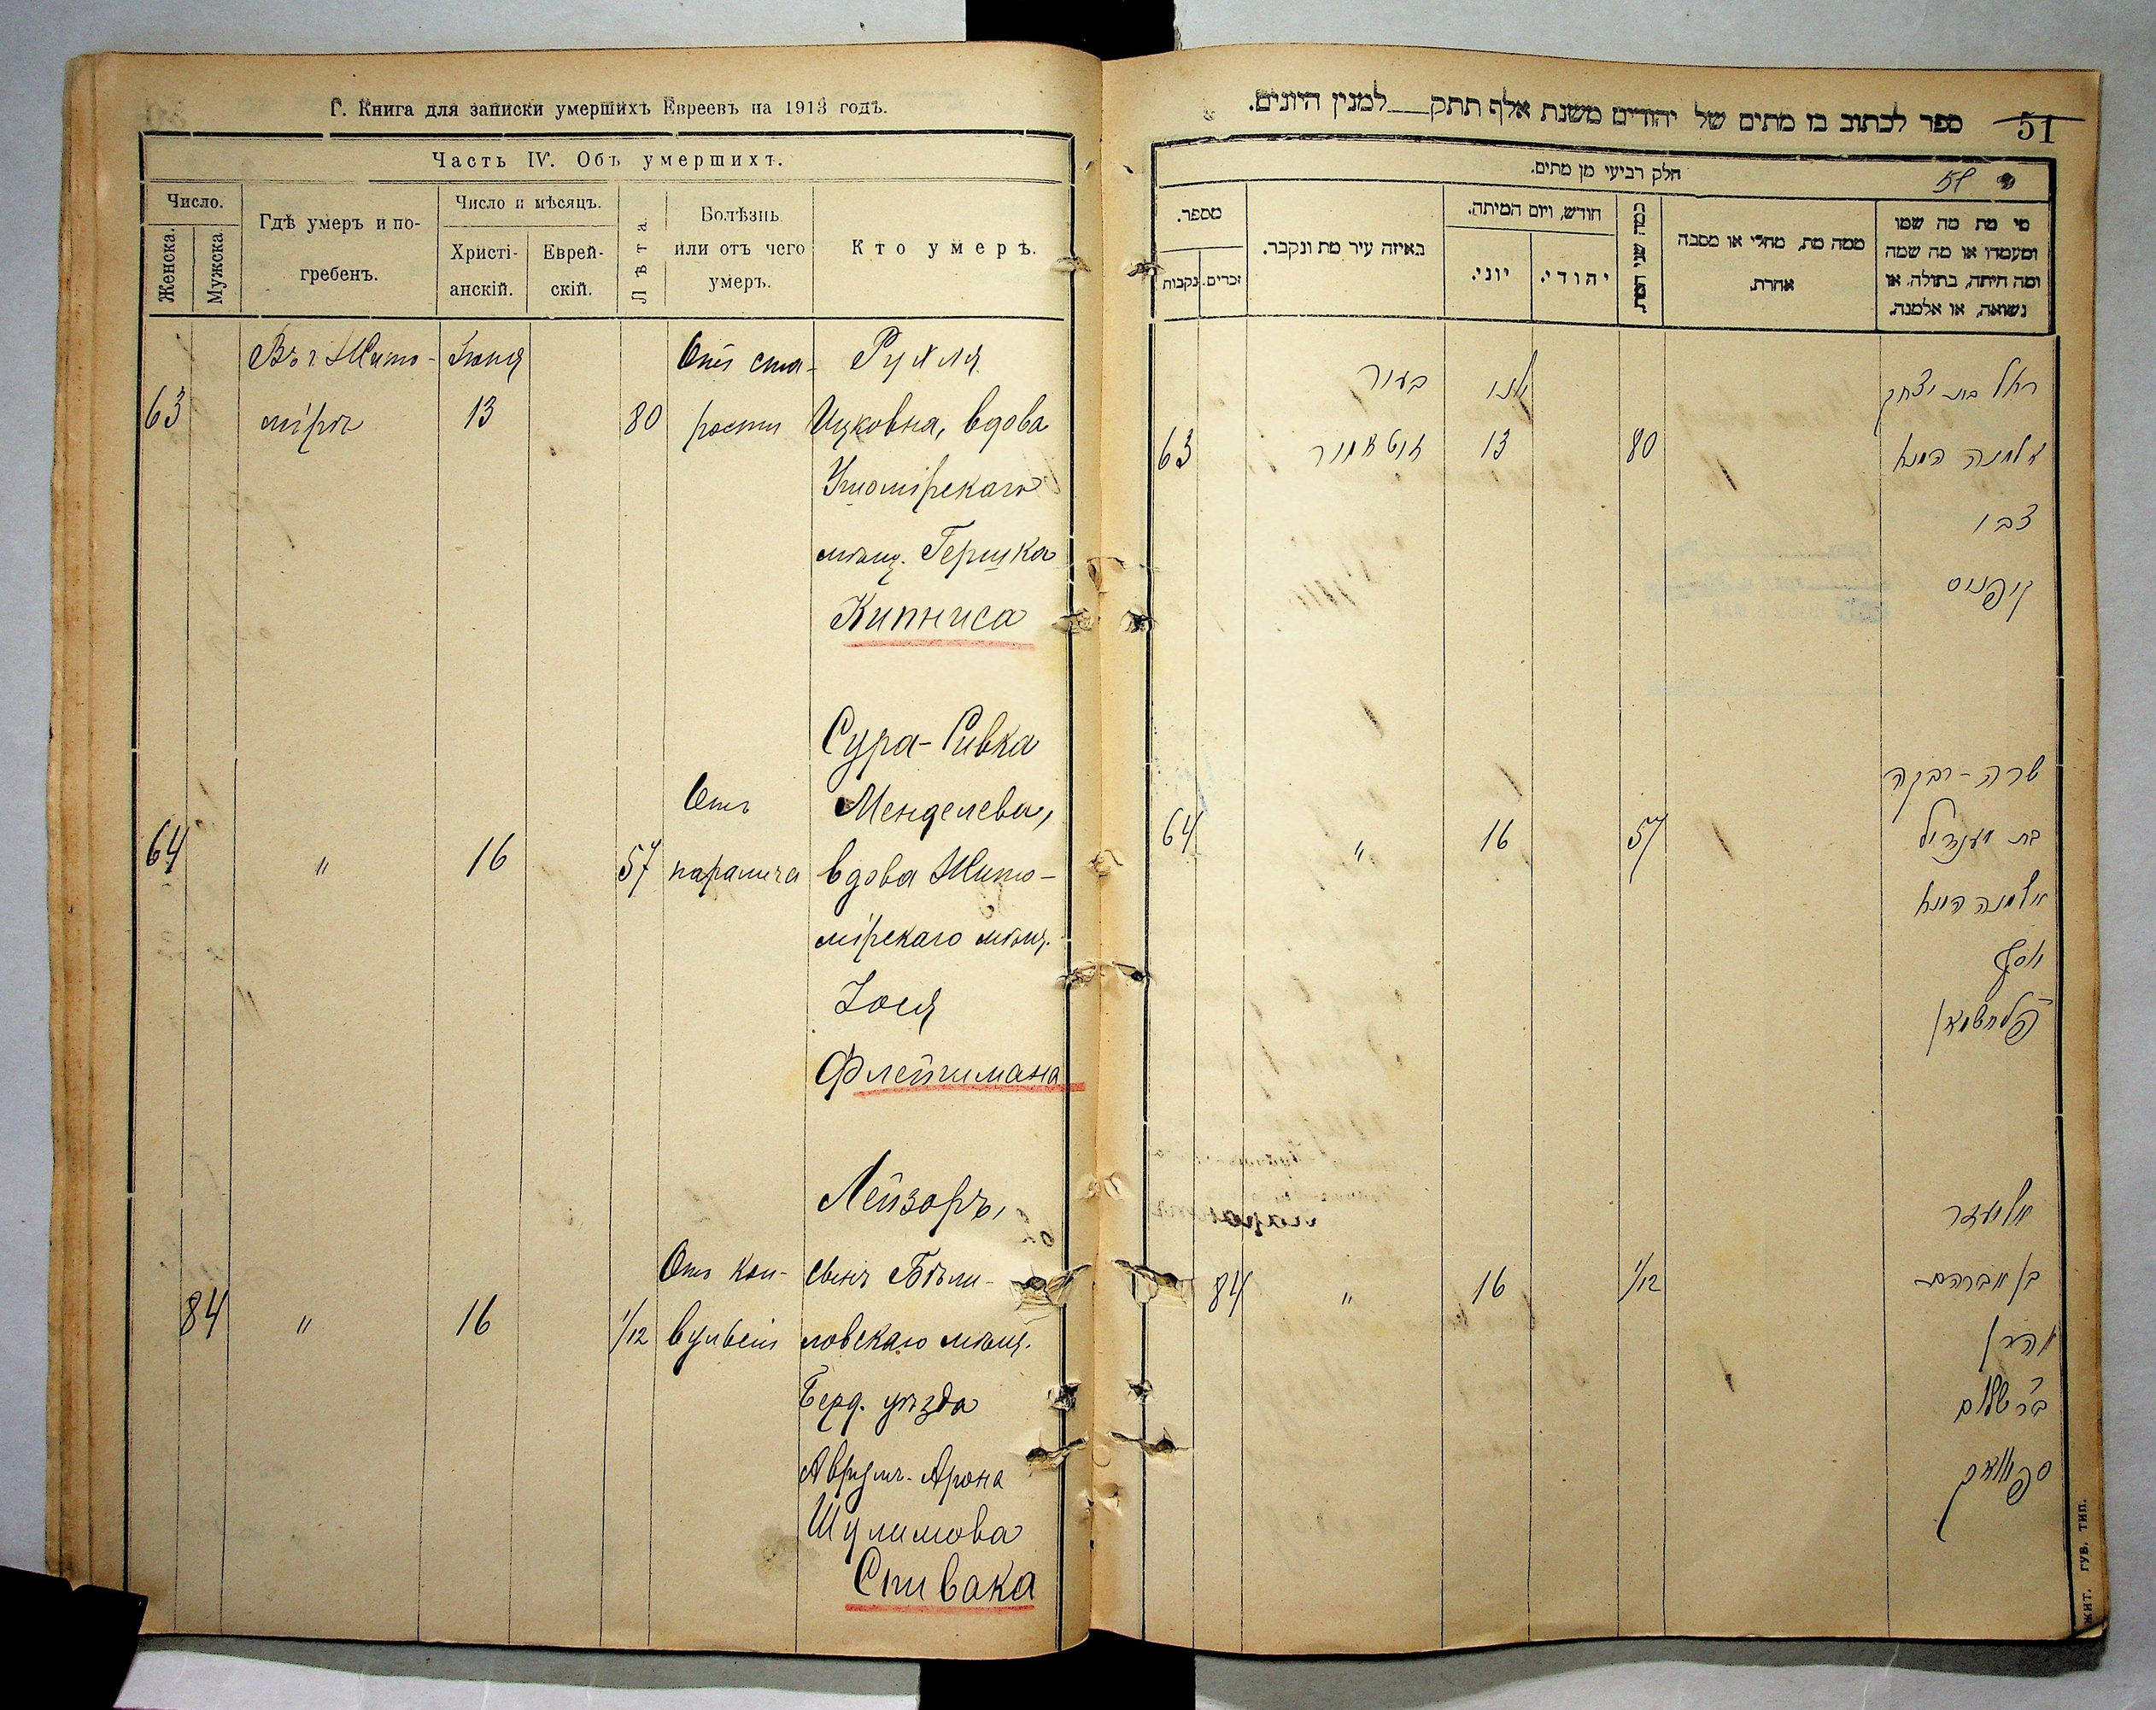 Г. Книга для записки умершихъ Евреевъ на 1913 годъ.
Часть IV. Объ умершихъ.
Число.
Женска.
Мужска.
Гдѣ умеръ и по-
гребенъ.
Число и мѣсяцъ.
Христі-
анскій.
Еврей-
скій.
Лѣта.
Болѣзнь
или отъ чего
умеръ.
Кто умеръ.
63
Въ г. Жито-
мірѣ
Іюня
13
80
Отъ ста-
рости
Рухля
Ицковна, вдова
Житомірскаго
мѣщ. Гершка
Кипниса
64
"
16
57
Отъ
паралича
Сура-Ривка
Менделева,
вдова Жито-
мірскаго мѣщ.
Іося
Флейшмана
84
"
16
1/12
Отъ кон-
вульсій
Лейзоръ,
сынъ Бѣли-
ловскаго мѣщ.
Берд. уѣзда
Аврумъ-Арона
Шулимова
Спивака
ספר לכתוב בו מתים של יהודים משנת אלף תתק___למנין היונים.
51
חלק רביעי מן מתים.
51
מי מת מה שמו
ומעמדו או מה שמה
ומה היתה, בתולה, או
נשואה, או אלמנה.
ממה מת, מחלי או מסבה
אחרת.
כמה שני המת
חודש, ויום המיתה.
יהודי.
יוני.
באיזה עיר מת ונקבר.
מספר.
זכרים.
נקבות
רחל בת יצחק
אלמנה
צבי
קיפניס
80
יוני
13
בעיר
זיטאמיר
63
שרה-רבקה
בת מענדיל
אלמנה
יוסף
פליישמאן
57
16
"
64
אליעזר
בן אברהם
אהרן
שלום
ספיוואק
1/12
16
"
84
ЖИТ. ГУБ. ТИП.